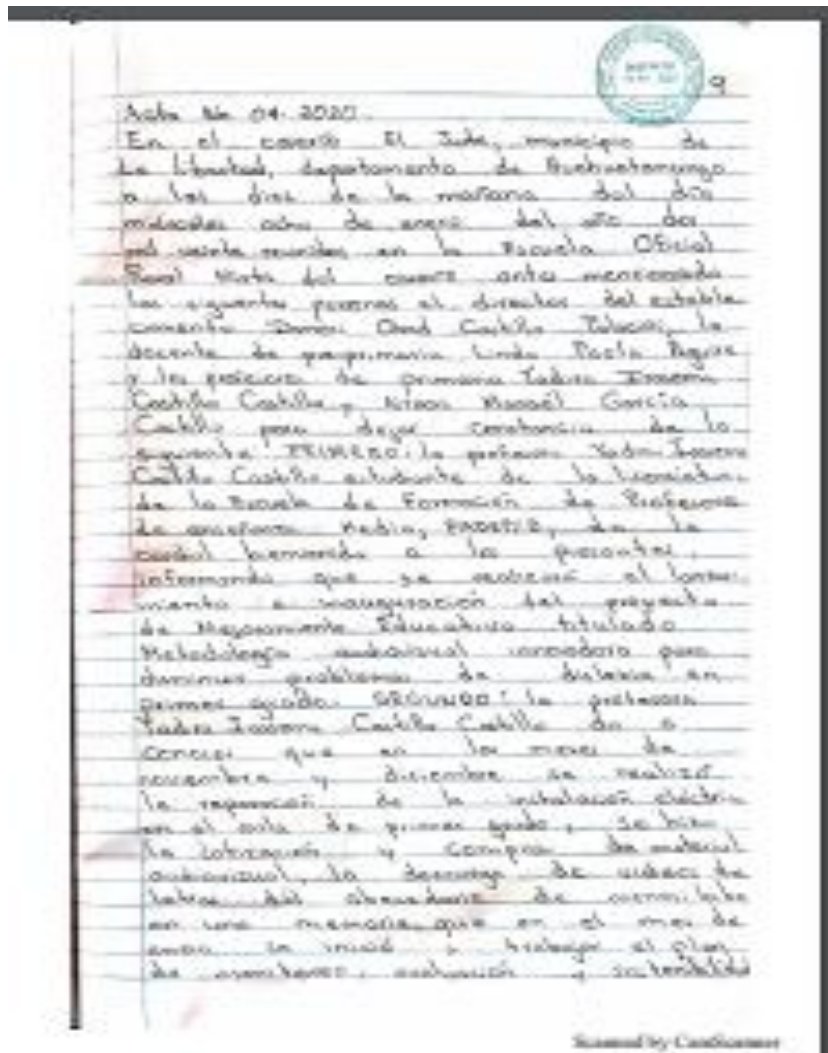 9
Acta No 04-2020.
En el caserío El municipio de
La Libertad, departamento de Huehuetenango
a las diez de la mañana del día
miércoles ocho de enero del año dos
mil veinte reunidos en la Escuela Oficial
Rural Mixta del caserío antes mencionado
las siguientes personas el director del estable
cimiento Castillo Palacios, la
docente de preprimaria Linda Paola
y los profesores de primaria Yadira
Castillo Castillo y García
Castillo para dejar constancia de lo
siguiente PRIMERO: la profesora Yadira
Castillo Castillo estudiante de la licenciatura
de la Escuela de Formación de Profesores
de enseñanza Media, da la
cordial bienvenida a los presentes,
informando que se realizará el lanza
miento e inauguración del proyecto
de Mejoramiento Educativo titulado
Metodología audiovisual innovadora para
disminuir problemas de dislexia en
primer grado. SEGUNDO: la profesora
Yadira Castillo Castillo da a
conocer que en los meses de
noviembre y diciembre se realizó
la reparación de la instalación eléctrica
en el aula de primer grado, se hizo
la cotización y compra de material
audiovisual, la descarga de videos de
letras del abecedario de
en una memoria, que en el mes de
enero se inició a trabajar el plan
de monitoreo, evaluación y sostenibilidad
Scanned by CamScanner